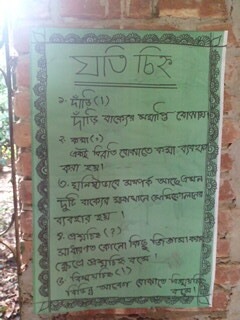 যতি চিহ্ন
১. দাঁড়ি (।)
দাঁড়ি বাক্যের সমাপ্তি বোঝায়
২. কমা (,)
একটু বিরতি বোঝাতে কমা ব্যবহার
করা হয়।
৩.
দুটি বাক্যের মাঝখানে
ব্যবহার হয়।
৪. প্রশ্নচিহ্ন (?)
সাধারণত কোনো কিছু জিজ্ঞাসা করার
ক্ষেত্রে প্রশ্নচিহ্ন বসে।
৫. বিস্ময়চিহ্ন (!)
আবেগ বোঝাতে
বসে।